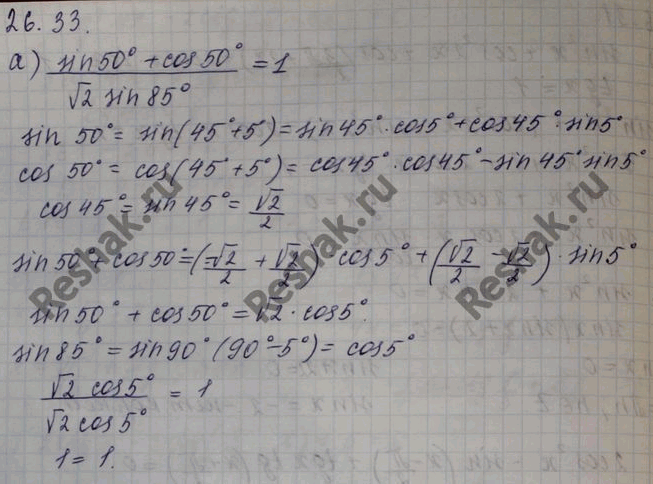 26.33.
а) (sin50° + cos50°)/(√2 sin85°) = 1
sin 50° = sin(45°+5°) = sin45°·cos5° + cos45°·sin5°
cos 50° = cos(45°+5°) = cos45°·cos45° - sin45° sin5°
cos45° = sin45° = √2/2
sin50° + cos50° = (√2/2 + √2/2)·cos5° + (√2/2 - √2/2)·sin5°
sin50° + cos50° = √2·cos5°.
sin85° = sin90° (90°-5°) = cos5°
(√2 cos5°)/(√2 cos5°) = 1
1 = 1.
Reshak.ru
Reshak.ru
Reshak.ru